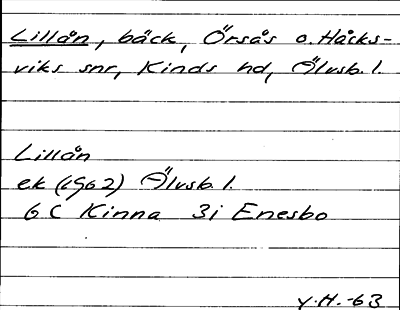 Lillån, bäck, Örsås o. Håcks-
viks snr, Kinds hd, Älvsb. l.
Lillån
ek (1962) Älvsb. l.
6 C Kinna 3i Enesbo
Y.H.-63